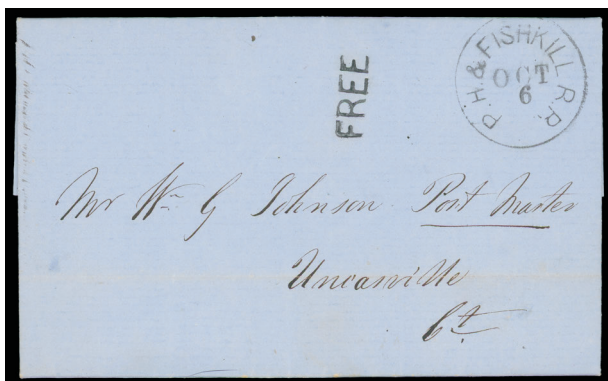 P. H. & FISHKILL R. R.
OCT
6
FREE
Mr Wm G Johnson Post Master
Uncasville
Ct